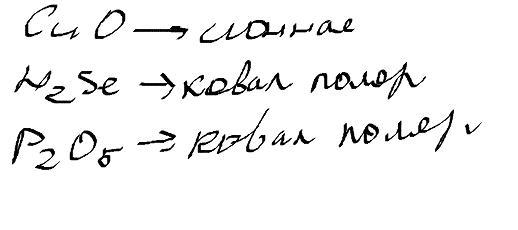 CuO → ионная
H₂Se → ковал поляр
P₂O₅ → ковал поляр.